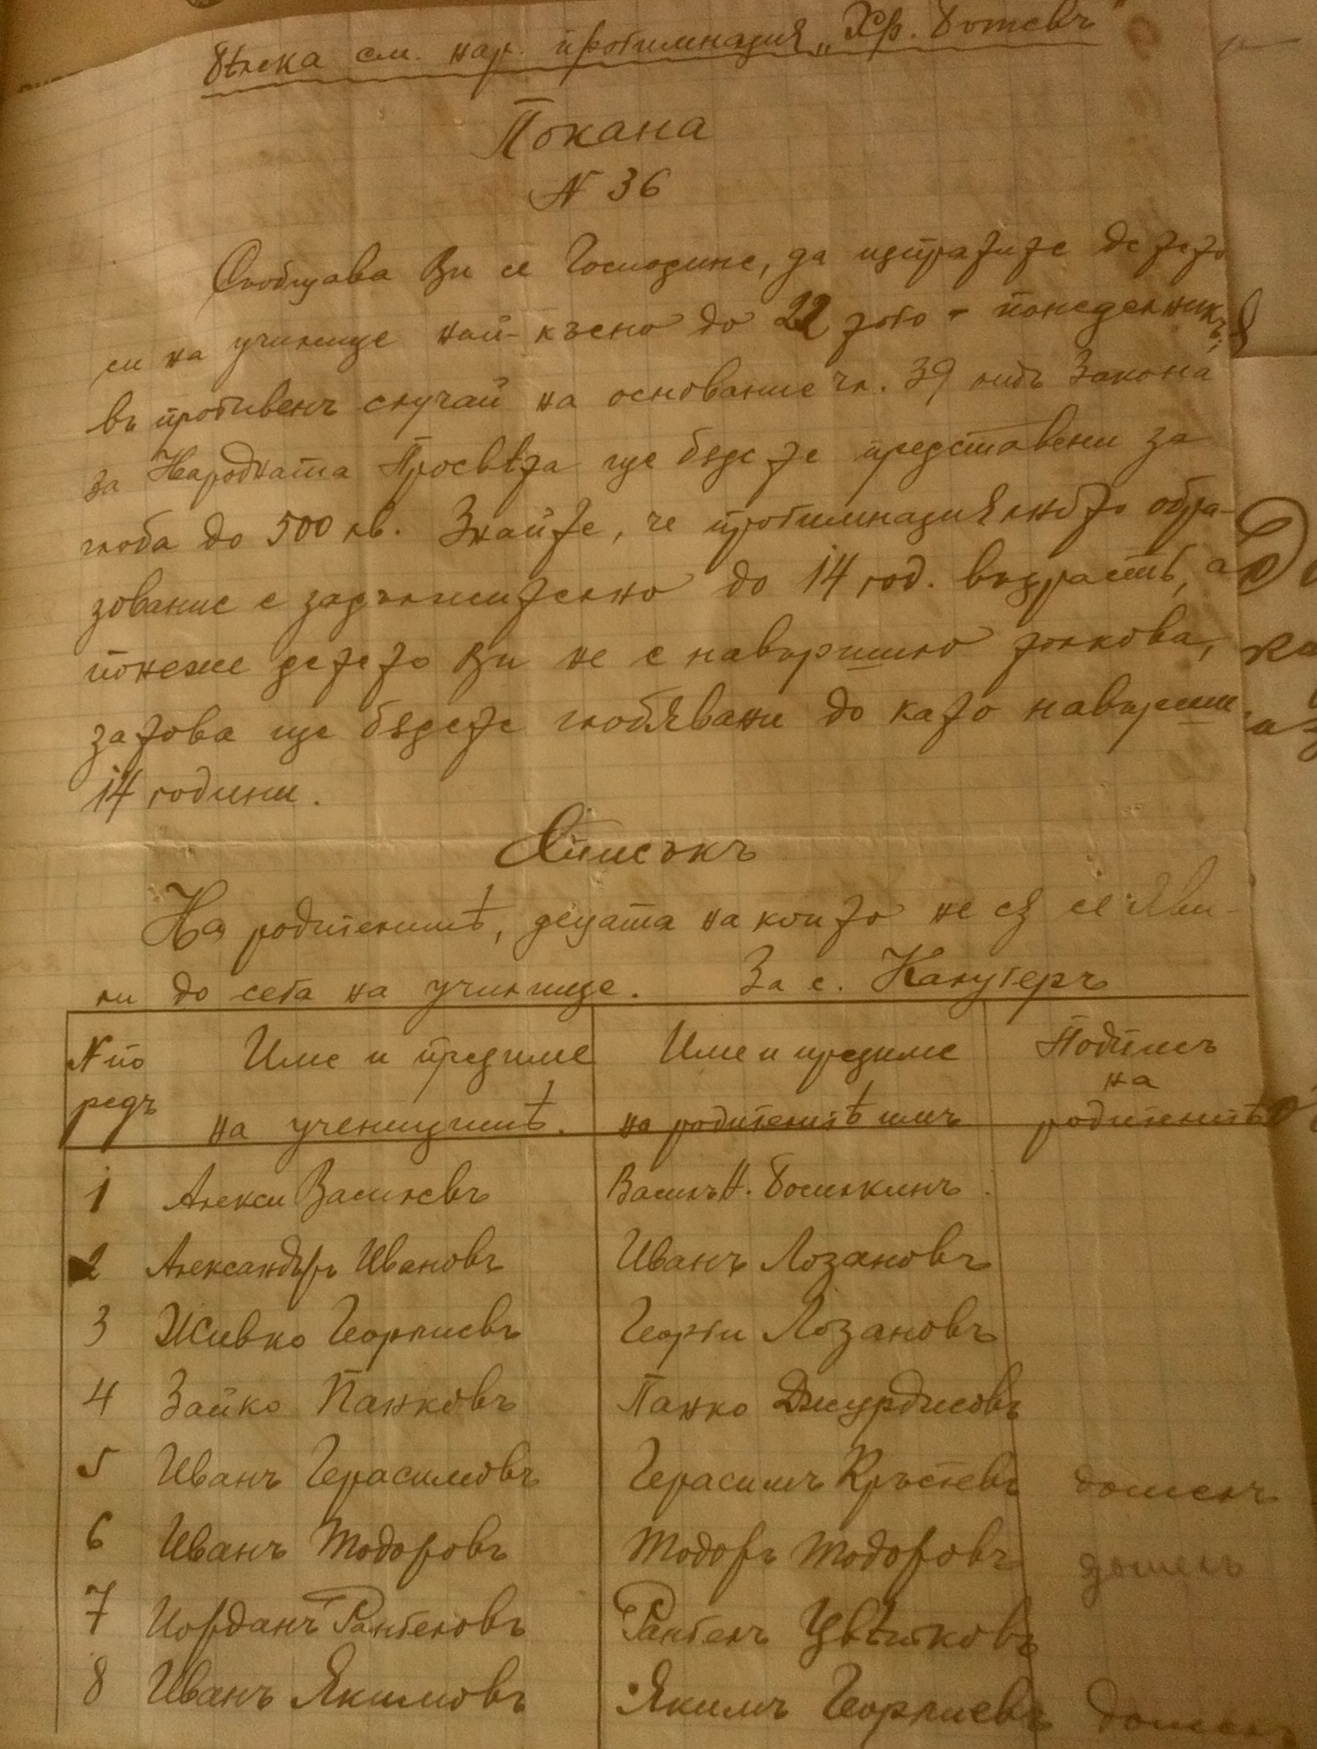 Бѣлска см. нар. прогимназия „Хр. Ботевъ"
Покана
N 36
Съобщава Ви се Господине, да изпратите детето
си на училище най-късно до 22 того - понеделникъ,
въ противенъ случай на основание чл. 39 отъ Закона
за Народната Просвѣта ще бѫдете представени за
глоба до 500 лв. Знайте, че прогимназиялното обра-
зование е задължително до 14 год. възрасть, а
понеже детето Ви не е навършило толкова,
затова ще бѫдете глобявани до като навърши
14 години.
Списъкъ
На родителитѣ, децата на които не сѫ се яви-
ли до сега на училище. За с.
N по редъ
Име и презиме на ученицитѣ.
Име и презиме на родителитѣ имъ
Подписъ на родителитѣ
1 Алекси Василевъ Василъ Н.
2 Александъръ Ивановъ Иванъ Лозановъ
3 Живко Георгиевъ Георги Лозановъ
4 Зайко Панковъ Панко
5 Иванъ Герасимовъ Герасимъ Кръстевъ дошелъ
6 Иванъ Тодоровъ Тодоръ Тодоровъ дошелъ
7 Иорданъ Рангеловъ Рангелъ Цвѣтковъ
8 Иванъ Якимовъ Якимъ Георгиевъ дошелъ